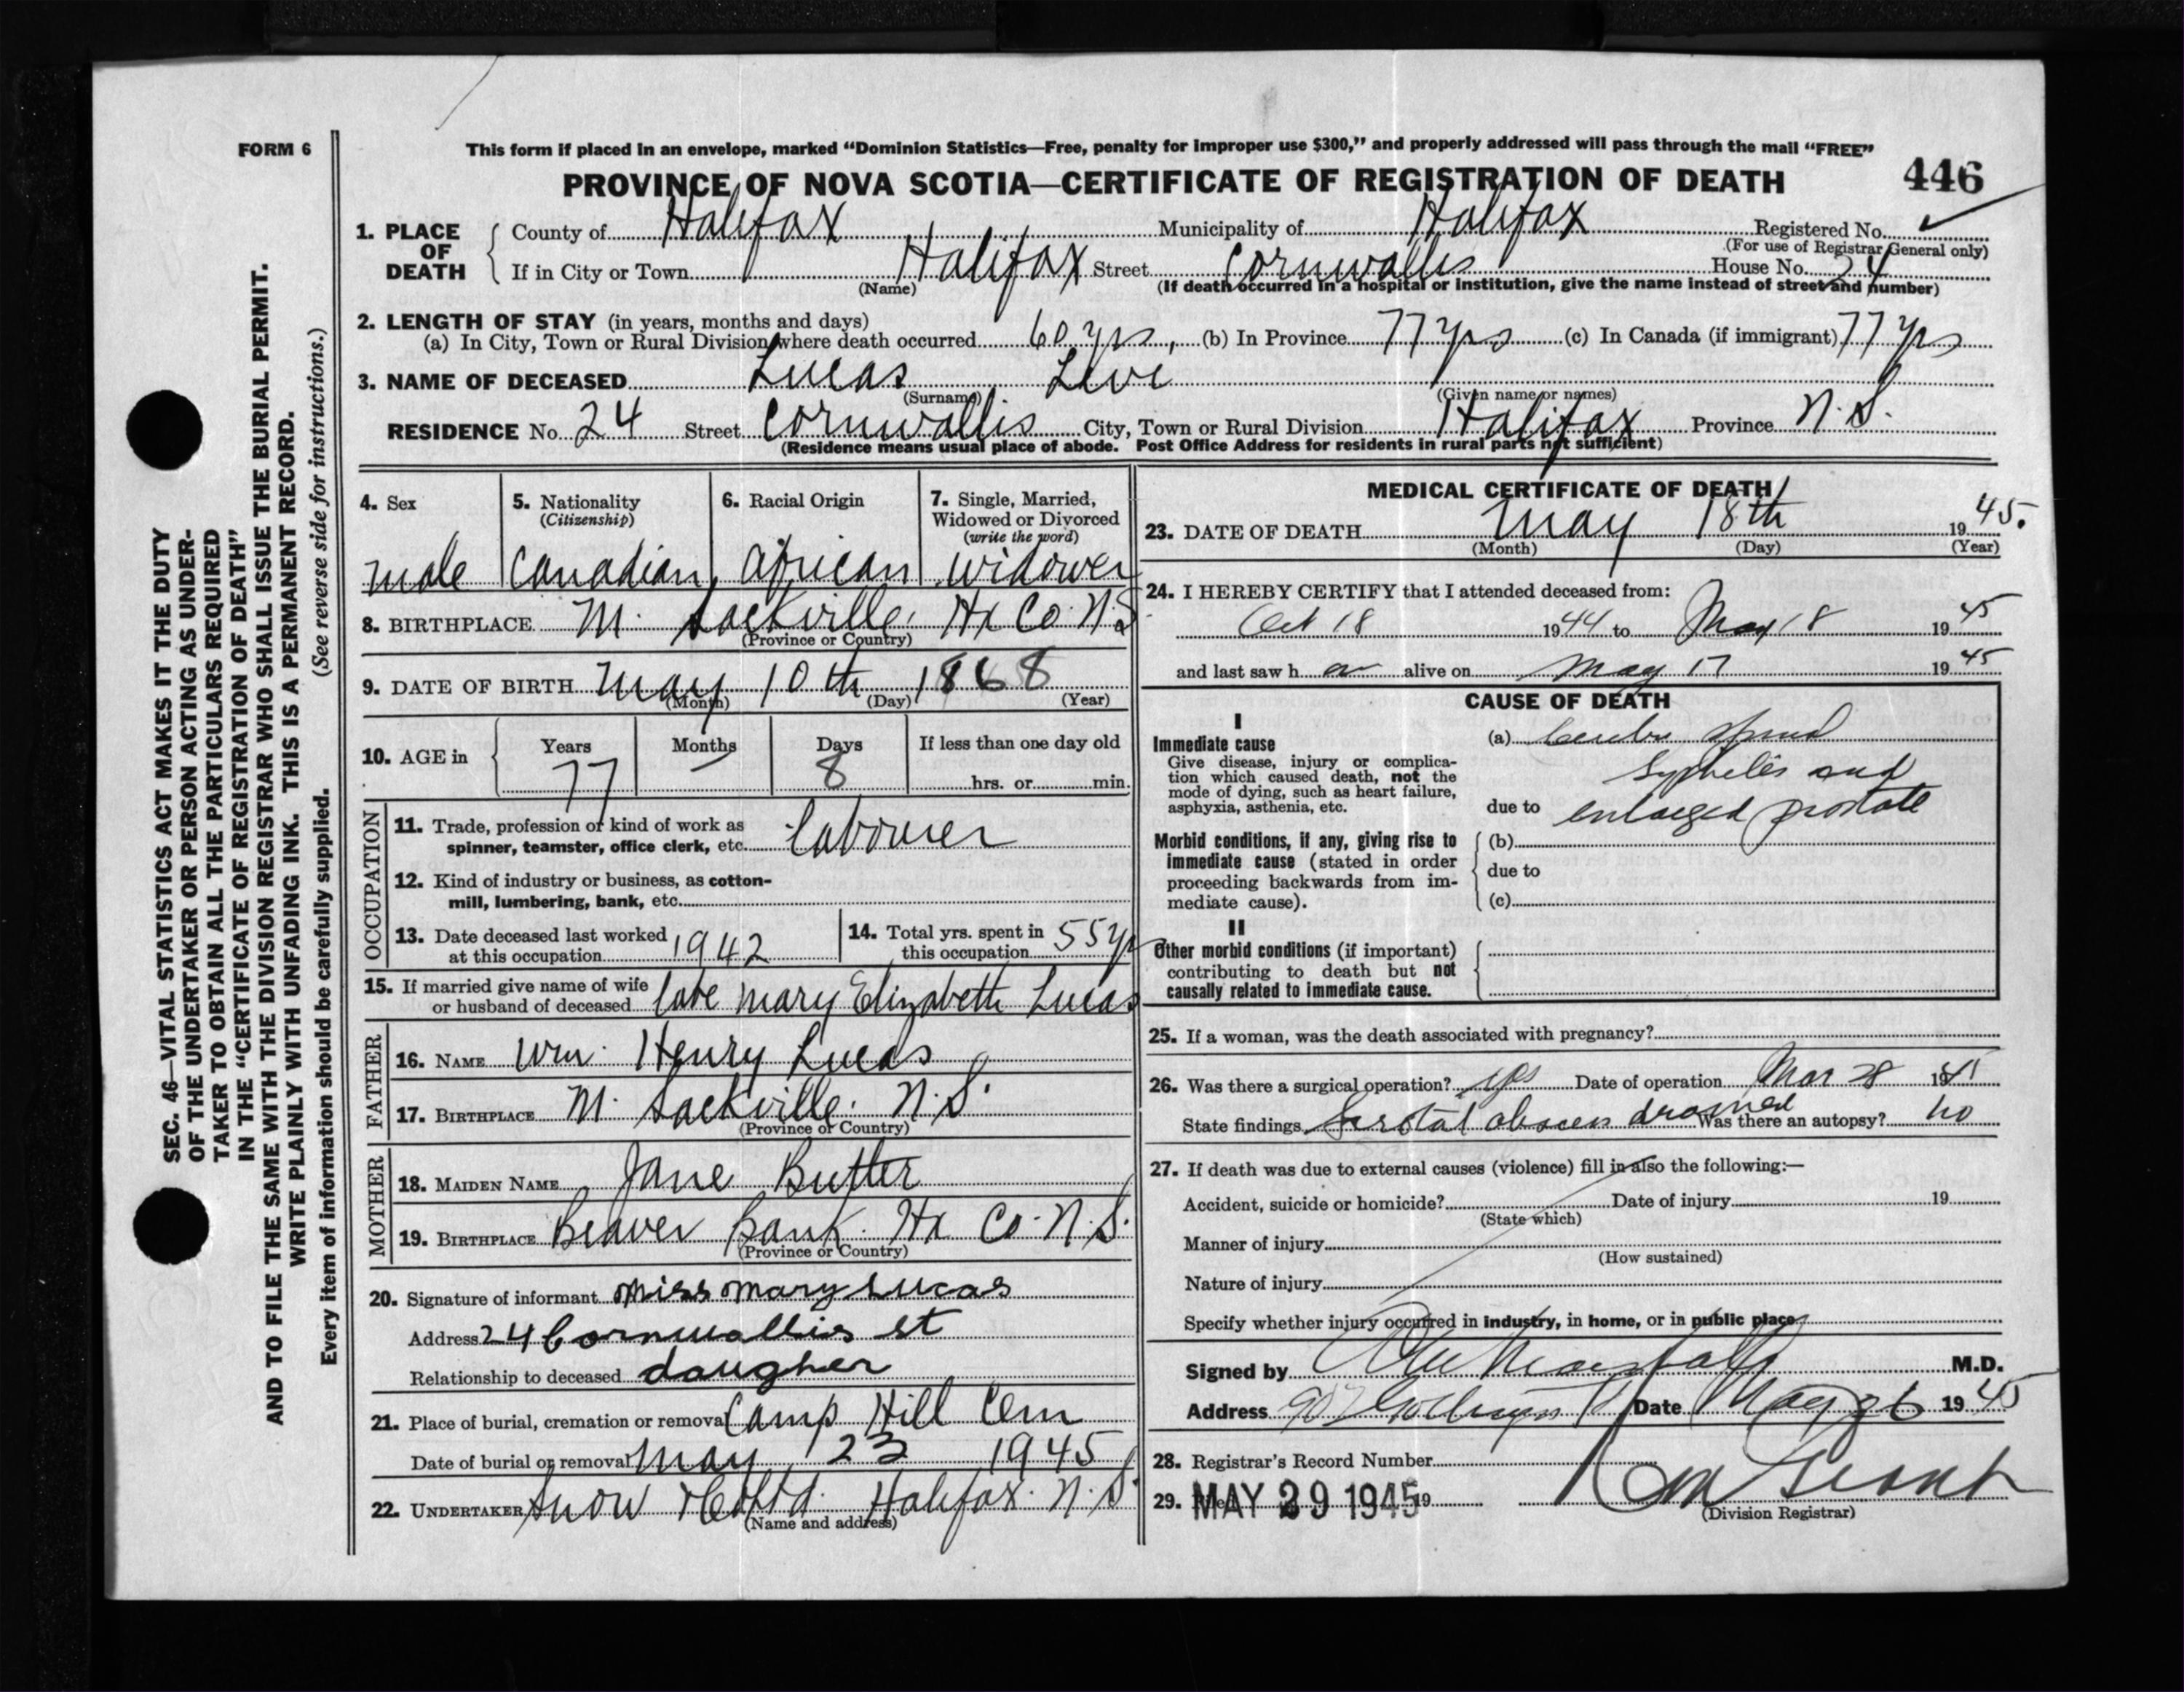 FORM 6
This form if placed in an envelope, marked “Dominion Statistics—Free, penalty for improper use $300,” and properly addressed will pass through the mail “FREE”
PROVINCE OF NOVA SCOTIA—CERTIFICATE OF REGISTRATION OF DEATH 446
SEC. 46—VITAL STATISTICS ACT MAKES IT THE DUTY
OF THE UNDERTAKER OR PERSON ACTING AS UNDER-
TAKER TO OBTAIN ALL THE PARTICULARS REQUIRED
IN THE “CERTIFICATE OF REGISTRATION OF DEATH”
AND TO FILE THE SAME WITH THE DIVISION REGISTRAR WHO SHALL ISSUE THE BURIAL PERMIT.
WRITE PLAINLY WITH UNFADING INK. THIS IS A PERMANENT RECORD.
Every item of information should be carefully supplied. (See reverse side for instructions.)
1. PLACE OF DEATH
County of Halifax Municipality of Halifax Registered No.
(For use of Registrar General only)
If in City or Town Halifax Street Cornwallis House No. 24
(Name) (If death occurred in a hospital or institution, give the name instead of street and number)
2. LENGTH OF STAY (in years, months and days)
(a) In City, Town or Rural Division where death occurred 60 yrs, (b) In Province 77 yrs (c) In Canada (if immigrant) 77 yrs
3. NAME OF DECEASED Lucas Levi
(Surname) (Given name or names)
RESIDENCE No. 24 Street Cornwallis City, Town or Rural Division Halifax Province N.S.
(Residence means usual place of abode. Post Office Address for residents in rural parts not sufficient)
4. Sex
male
5. Nationality
(Citizenship)
Canadian
6. Racial Origin
African
7. Single, Married,
Widowed or Divorced
(write the word)
widower
8. BIRTHPLACE M. Sackville. Hx Co. N.S
(Province or Country)
9. DATE OF BIRTH May 10th 1868
(Month) (Day) (Year)
10. AGE in
Years Months Days If less than one day old
77 — 8 hrs. or min.
OCCUPATION
11. Trade, profession or kind of work as
spinner, teamster, office clerk, etc. Labourer
12. Kind of industry or business, as cotton-
mill, lumbering, bank, etc.
13. Date deceased last worked
at this occupation 1942
14. Total yrs. spent in
this occupation 55 yrs
15. If married give name of wife
or husband of deceased late Mary Elizabeth Lucas
FATHER
16. NAME Wm. Henry Lucas
17. BIRTHPLACE M. Sackville. N.S.
(Province or Country)
MOTHER
18. MAIDEN NAME Jane Butler
19. BIRTHPLACE Beaver Bank. Hx Co. N.S.
(Province or Country)
20. Signature of informant Miss Mary Lucas
Address 24 Cornwallis st
Relationship to deceased daugher
21. Place of burial, cremation or removal Camp Hill Cem
Date of burial or removal May 23 1945
22. UNDERTAKER Snow & Co Ltd. Halifax. N.S.
(Name and address)
MEDICAL CERTIFICATE OF DEATH
23. DATE OF DEATH May 18th 1945.
(Month) (Day) (Year)
24. I HEREBY CERTIFY that I attended deceased from:
Oct 18 1944 to May 18 1945
and last saw h alive on May 17 1945
CAUSE OF DEATH
I
Immediate cause
Give disease, injury or complica-
tion which caused death, not the
mode of dying, such as heart failure,
asphyxia, asthenia, etc.
(a) Cerebro spinal
Syphilis and
due to enlarged prostate
Morbid conditions, if any, giving rise to
immediate cause (stated in order
proceeding backwards from im-
mediate cause).
(b)
due to
(c)
II
Other morbid conditions (if important)
contributing to death but not
causally related to immediate cause.
25. If a woman, was the death associated with pregnancy?
26. Was there a surgical operation? yes Date of operation Mar 28 1945
State findings abscess drained Was there an autopsy? no
27. If death was due to external causes (violence) fill in also the following:—
Accident, suicide or homicide? Date of injury 19
(State which)
Manner of injury
(How sustained)
Nature of injury
Specify whether injury occurred in industry, in home, or in public place
Signed by M.D.
Address Date May 26 1945
28. Registrar’s Record Number
29. Filed MAY 29 1945 19
(Division Registrar)